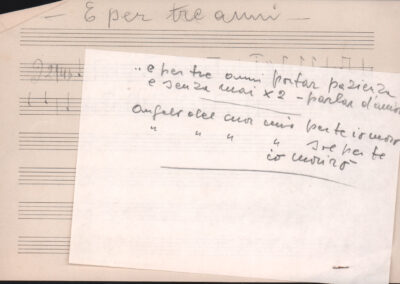 — E per tre anni —
„ e per tre anni portar pazienza
e senza mai x 2 – parlar d'amor
Angelo del cuor mio per te io moro
" " " " per te
io morirò